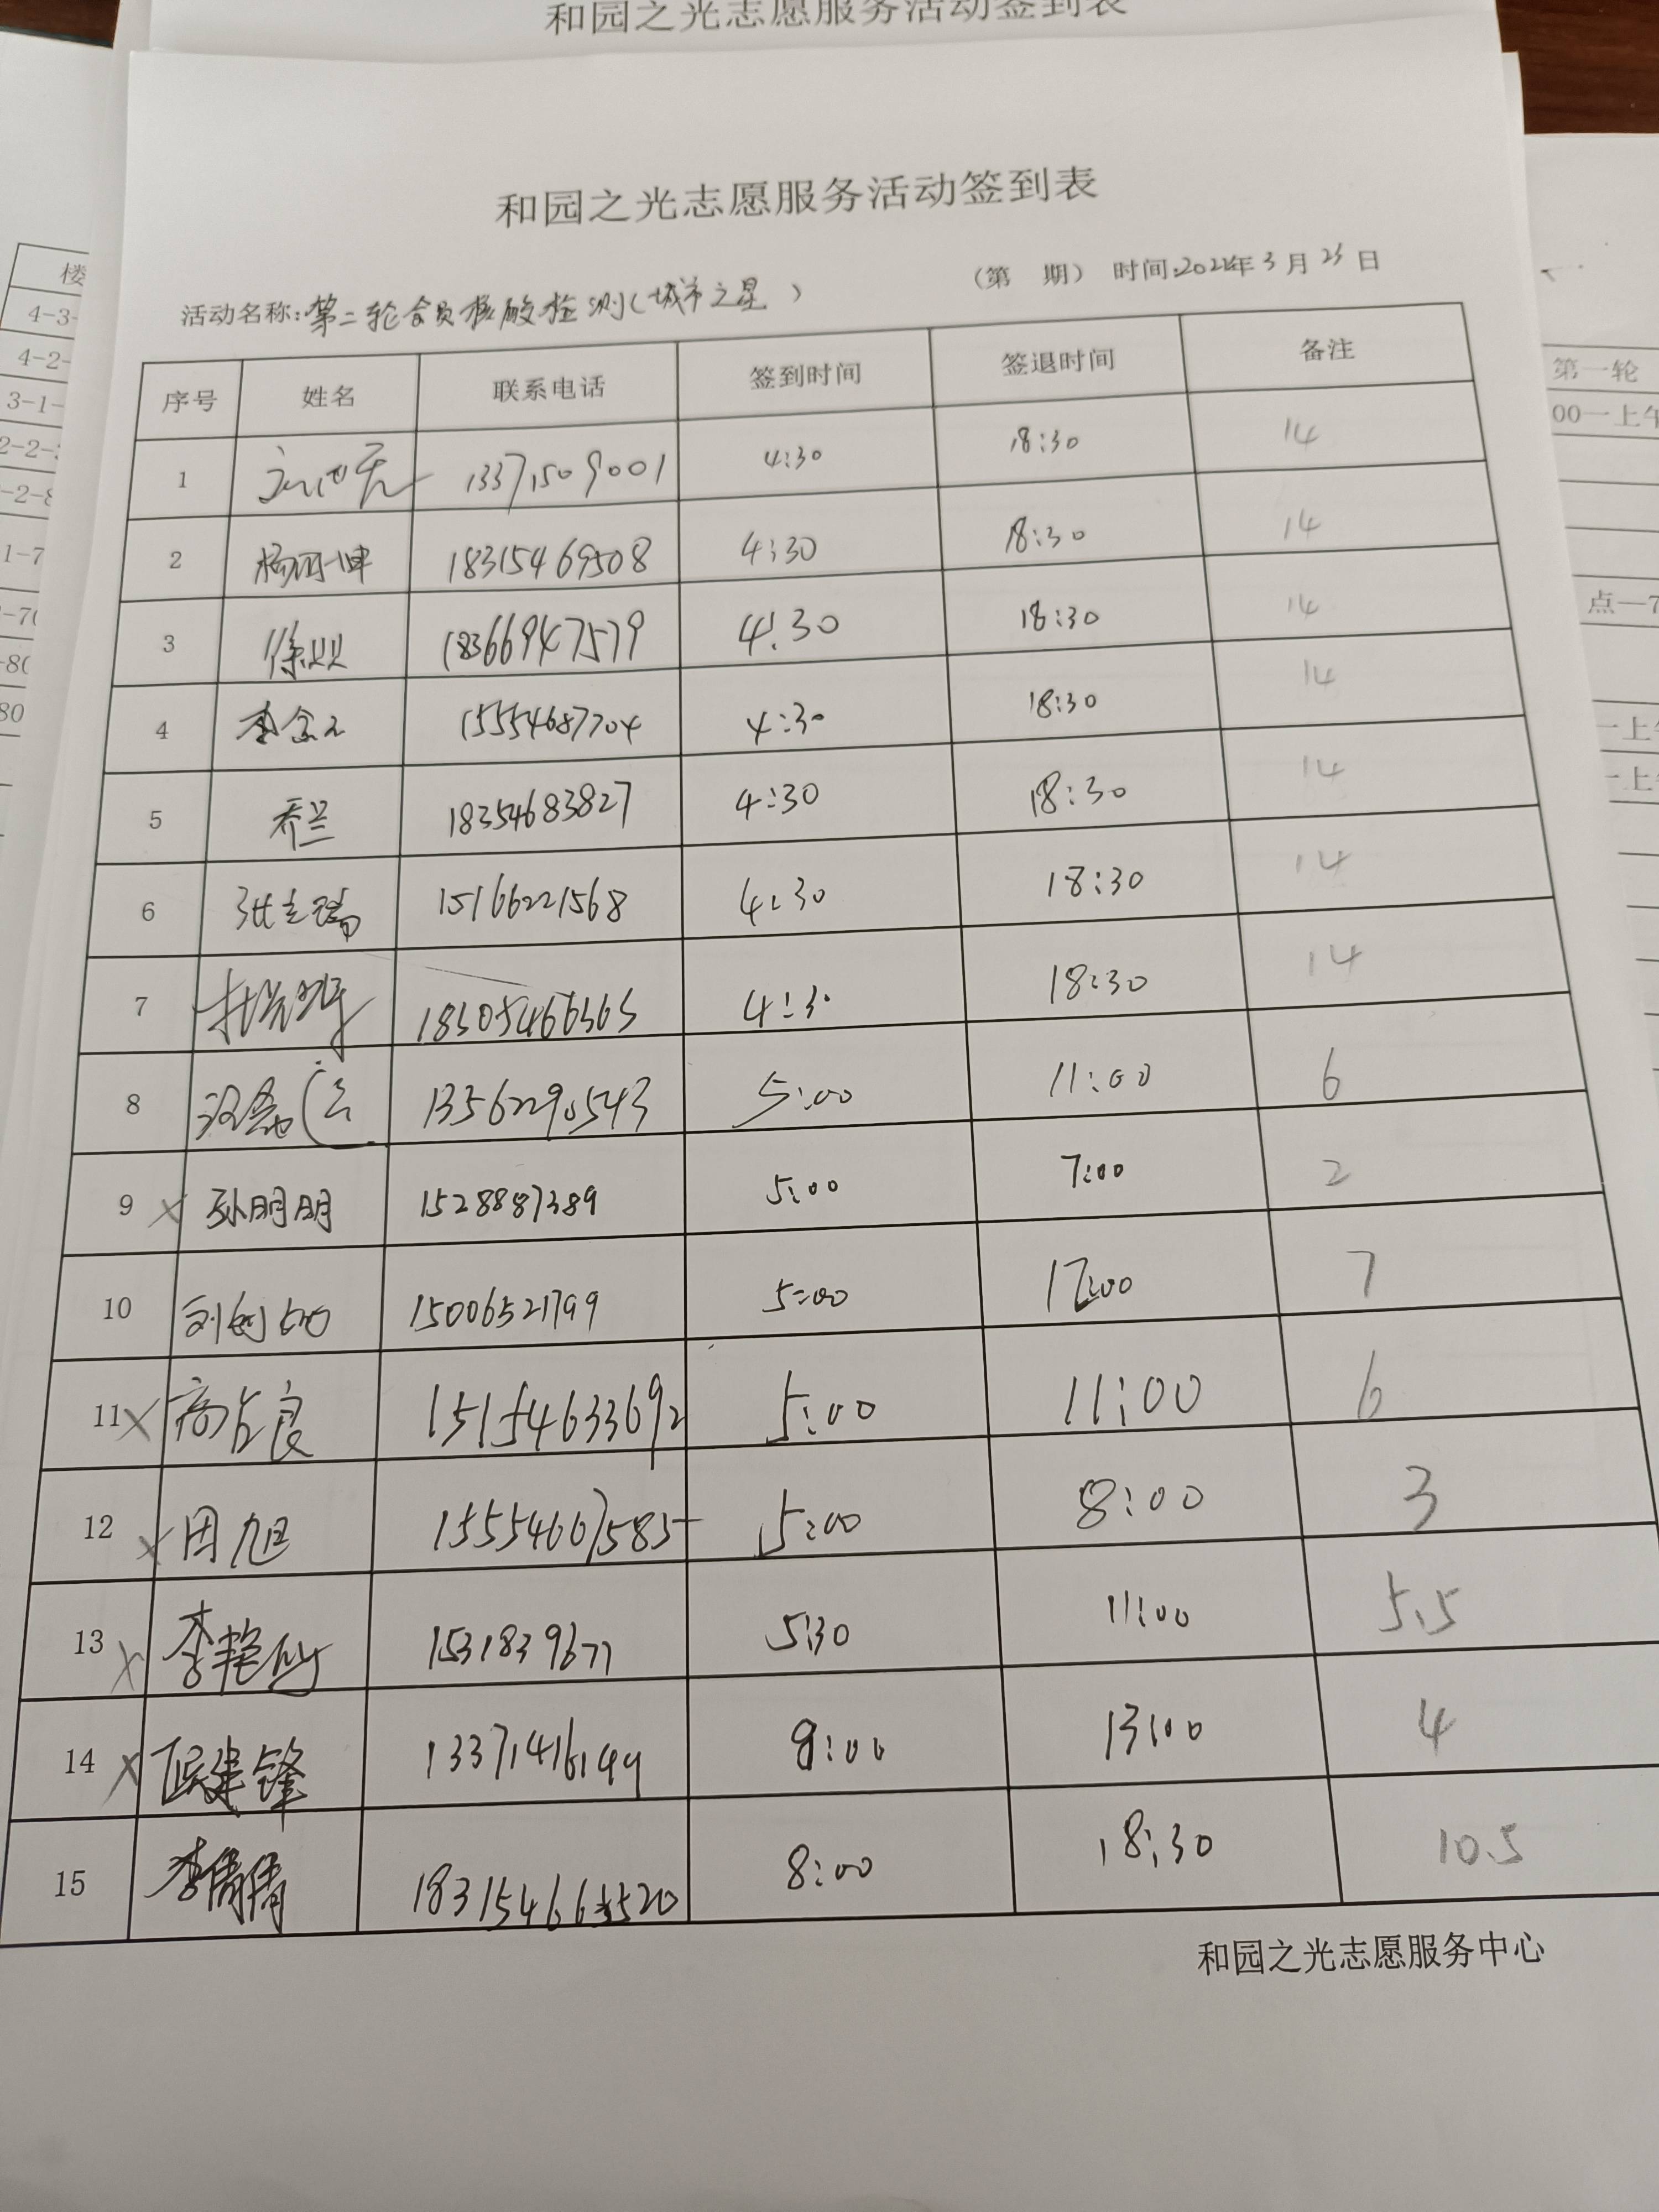 和园之光志愿服务活动签到表
和园之光志愿服务活动签到表
(第 期) 时间:2022年3月23日
活动名称:第二轮全员核酸检测(城市之星)
序号 姓名 联系电话 签到时间 签退时间 备注
1 13371509001 4:30 18:30 14
2 18315469508 4:30 18:30 14
3 徐双双 18366947579 4:30 18:30 14
4 15554687704 4:30 18:30 14
5 乔兰 18354683827 4:30 18:30 14
6 张志瑞 15166221568 4:30 18:30 14
7 4:30 18:30 14
8 13562290543 5:00 11:00 6
9 × 孙明明 1528887389 5:00 7:00 2
10 15006521799 5:00 12:00 7
11 × 商占良 15154633692 5:00 11:00 6
12 × 田旭 15554667585 5:00 8:00 3
13 × 1531839677 5:30 11:00 5.5
14 × 13371416149 9:00 13:00 4
15 李倩倩 8:00 18:30 10.5
和园之光志愿服务中心
楼
4-3-
4-2-
3-1-
2-2-
-2-8
1-7
-70
-80
80
第一轮
00一上午
点—7
一上午
一上午